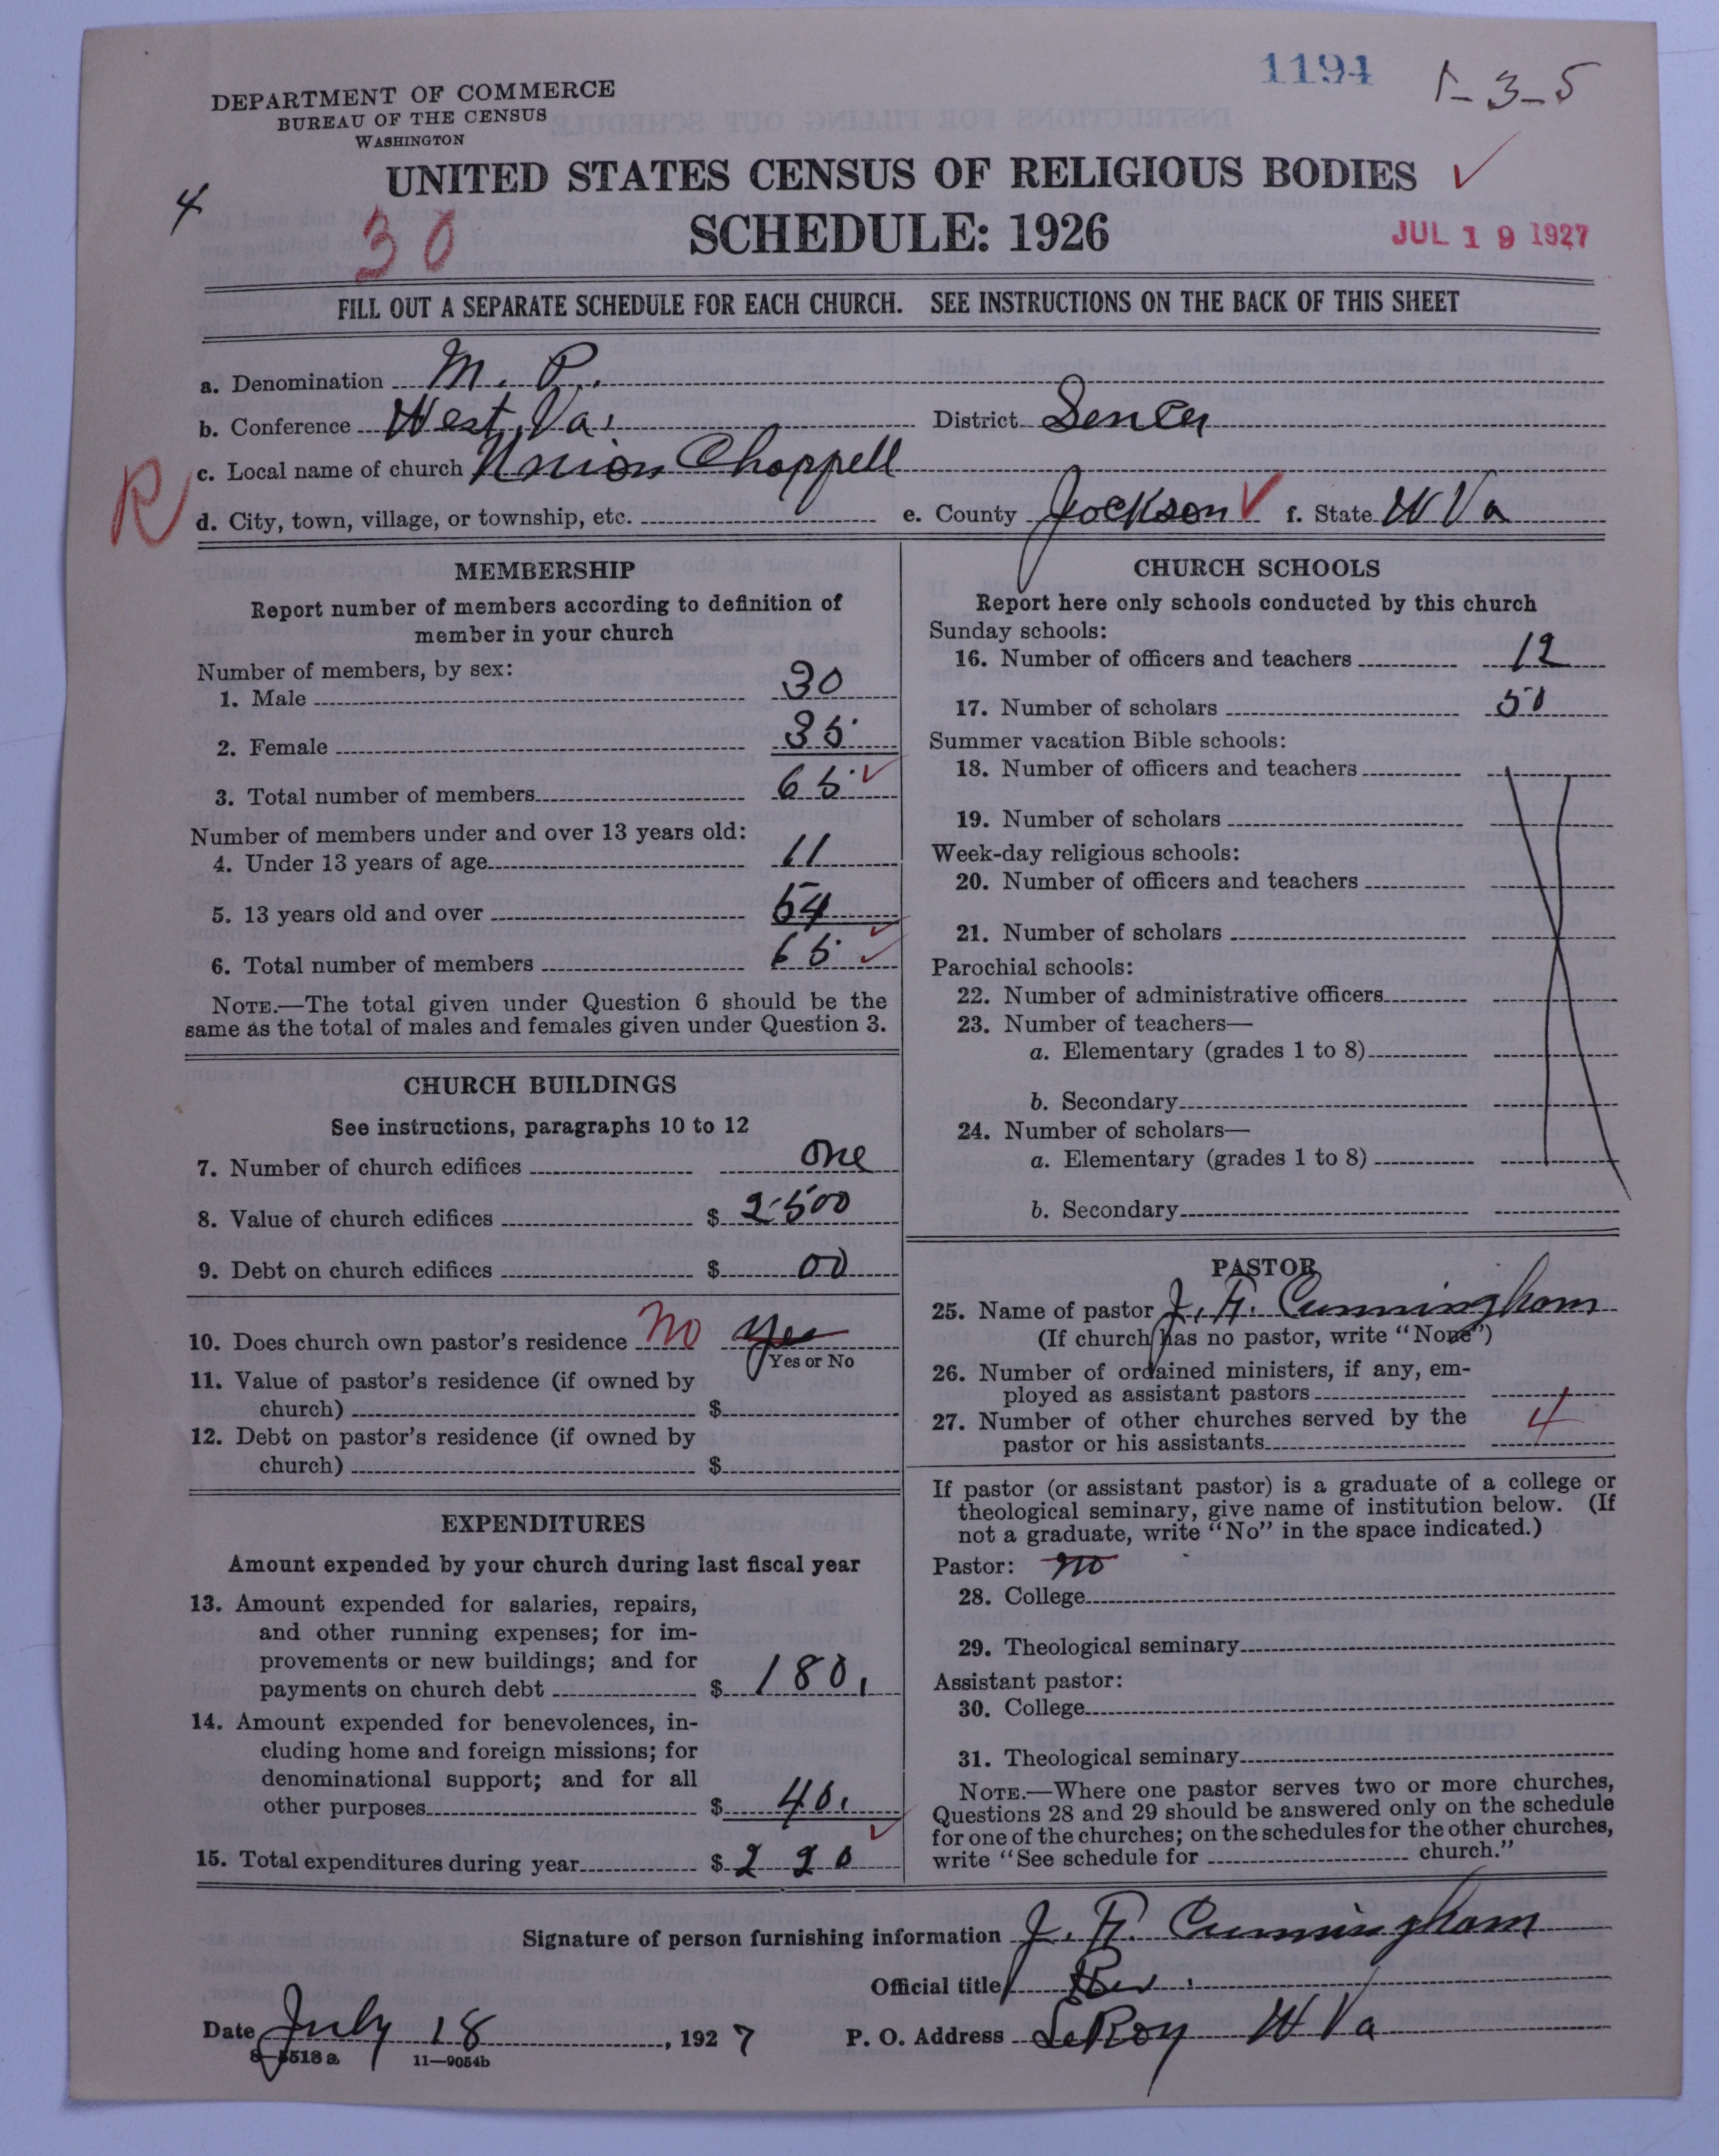 1194
1-3-5
DEPARTMENT OF COMMERCE
BUREAU OF THE CENSUS
WASHINGTON
UNITED STATES CENSUS OF RELIGIOUS BODIES
4
30
SCHEDULE: 1926
JUL 19 1927
FILL OUT A SEPARATE SCHEDULE FOR EACH CHURCH. SEE INSTRUCTIONS ON THE BACK OF THIS SHEET
a. Denomination M. P.
b. Conference West, Va. District
c. Local name of church Union Chappell
R
d. City, town, village, or township, etc. e. County Jackson f. State W Va
MEMBERSHIP
Report number of members according to definition of
member in your church
Number of members, by sex:
1. Male 30
2. Female 35
3. Total number of members 65
Number of members under and over 13 years old:
4. Under 13 years of age 11
5. 13 years old and over 54
6. Total number of members 65
NOTE.—The total given under Question 6 should be the
same as the total of males and females given under Question 3.
CHURCH BUILDINGS
See instructions, paragraphs 10 to 12
7. Number of church edifices one
8. Value of church edifices $ 2500
9. Debt on church edifices $ 00
10. Does church own pastor's residence no yes
Yes or No
11. Value of pastor's residence (if owned by
church) $
12. Debt on pastor's residence (if owned by
church) $
EXPENDITURES
Amount expended by your church during last fiscal year
13. Amount expended for salaries, repairs,
and other running expenses; for im-
provements or new buildings; and for
payments on church debt $ 180.
14. Amount expended for benevolences, in-
cluding home and foreign missions; for
denominational support; and for all
other purposes $ 40.
15. Total expenditures during year $ 220
CHURCH SCHOOLS
Report here only schools conducted by this church
Sunday schools:
16. Number of officers and teachers 12
17. Number of scholars 50
Summer vacation Bible schools:
18. Number of officers and teachers
19. Number of scholars
Week-day religious schools:
20. Number of officers and teachers
21. Number of scholars
Parochial schools:
22. Number of administrative officers
23. Number of teachers—
a. Elementary (grades 1 to 8)
b. Secondary
24. Number of scholars—
a. Elementary (grades 1 to 8)
b. Secondary
PASTOR
25. Name of pastor J. F. Cunningham
(If church has no pastor, write "None")
26. Number of ordained ministers, if any, em-
ployed as assistant pastors
27. Number of other churches served by the
pastor or his assistants 4
If pastor (or assistant pastor) is a graduate of a college or
theological seminary, give name of institution below. (If
not a graduate, write "No" in the space indicated.)
Pastor: no
28. College
29. Theological seminary
Assistant pastor:
30. College
31. Theological seminary
NOTE.—Where one pastor serves two or more churches,
Questions 28 and 29 should be answered only on the schedule
for one of the churches; on the schedules for the other churches,
write "See schedule for church."
Signature of person furnishing information J. F. Cunningham
Official title Rev.
Date July 18, 1927 P. O. Address LeRoy W Va
8-5518 a 11—9054b